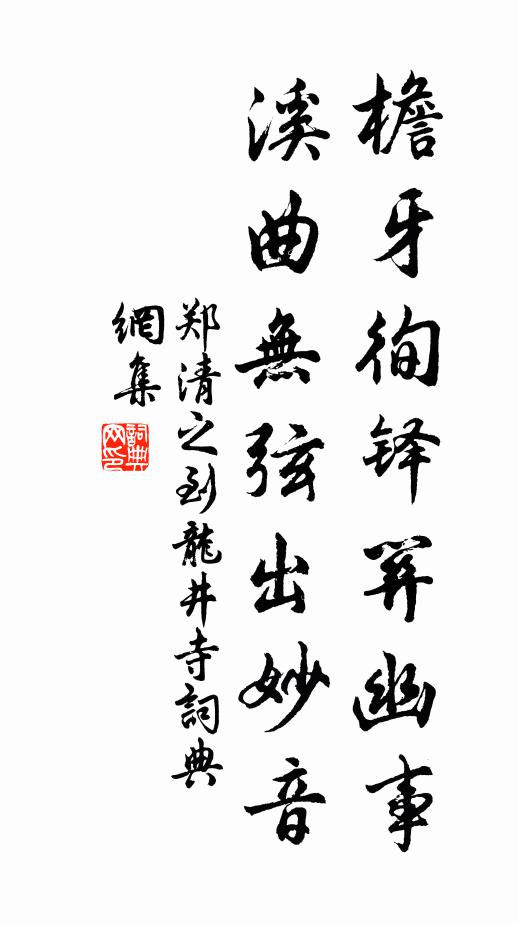 檐牙徇铎羿幽事
溪曲無弦出妙音
郑清之到龍井寺詞典
網集
詞典
网印